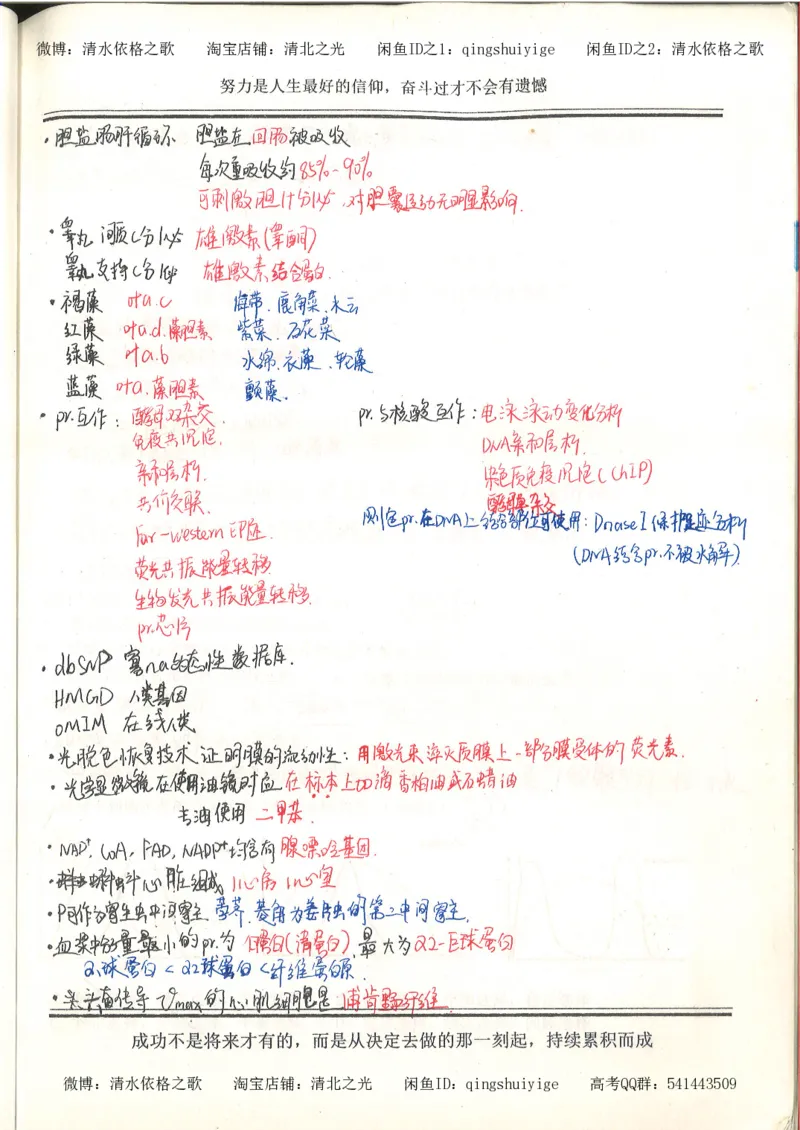 微博：清水依格之歌 淘宝店铺：清北之光 闲鱼ID之1：qingshuiyige 闲鱼ID之2：清水依格之歌
努力是人生最好的信仰，奋斗过才不会有遗憾
·胆盐肠肝循环 胆盐在回肠被吸收
每次重吸收约85%-90%
可刺激胆汁分泌，对胆囊运动无明显影响.
·睾丸间质C分泌 雄激素(睾酮)
睾丸支持C分泌 雄激素结合蛋白.
·褐藻 叶a.c 海带.鹿角菜.水云
红藻 叶a.d.藻胆素 紫菜.石花菜
绿藻 叶a.b 水绵.衣藻.轮藻
蓝藻 叶a.藻胆素 颤藻.
·pr.互作：酵母双杂交. pr.与核酸互作：电泳泳动变化分析
免疫共沉淀. DNA亲和层析.
亲和层析. 染色质免疫沉淀(ChIP)
共价交联. 酵母杂交
Far-western印迹. 测定pr.在DNA上结合部位可使用：DnaseⅠ保护足迹分析
荧光共振能量转移. (DNA结合pr.不被水解).
生物发光共振能量转移.
pr.芯片
·dbSNP 寡na多态性数据库.
HMGD 人类基因
OMIM 在线人类
·光脱色恢复技术证明膜的流动性：用激光来淬灭质膜上一部分膜受体的荧光素.
·光学显微镜在使用油镜时应在标本上加滴香柏油或石蜡油
去油使用二甲苯.
·NAD⁺, CoA, FAD, NADP⁺均含有腺嘌呤基团.
心脏组成 1心房 1心室
·可作为寄生虫中间寄主 荸荠.菱角为姜片虫的第二中间寄主.
·血浆中分子量最小的pr.为白蛋白(清蛋白).最大为α2-巨球蛋白
α1球蛋白<α2球蛋白<纤维蛋白原.
·兴奋传导Vmax的心肌细胞是浦肯野纤维.
成功不是将来才有的，而是从决定去做的那一刻起，持续累积而成
微博：清水依格之歌 淘宝店铺：清北之光 闲鱼ID：qingshuiyige 高考QQ群：541443509